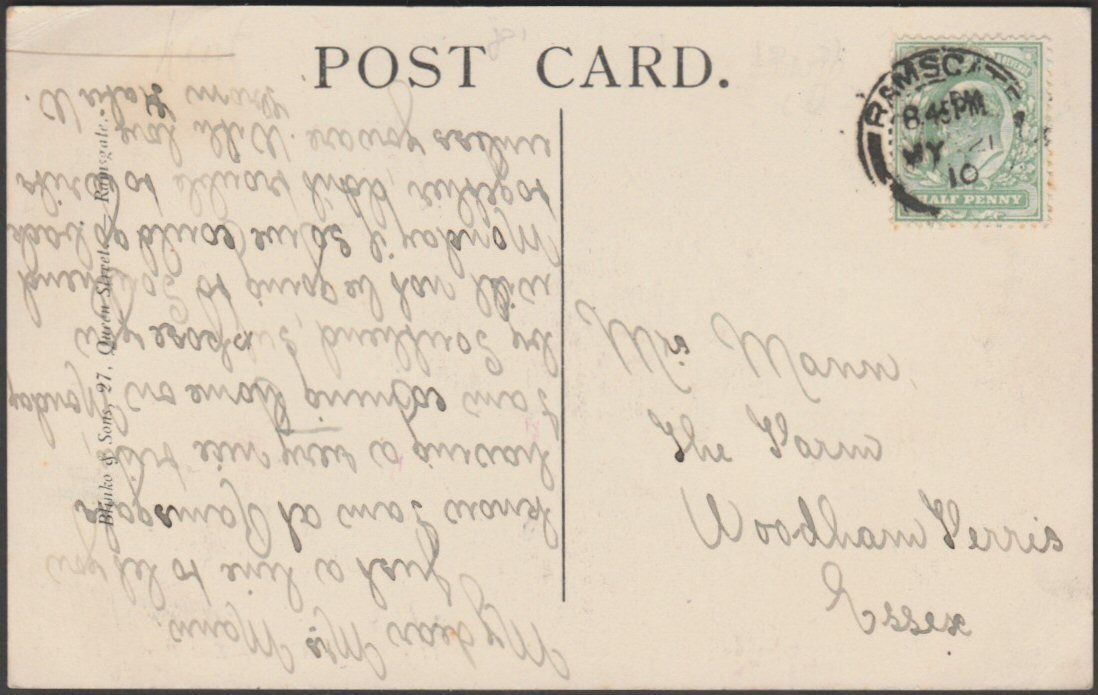 POST CARD.
RAMSGATE
8.45PM
MY 21
10
HALF PENNY
Mrs Mann,
The Farm
Woodham Ferris
Essex
Blinko & Sons, 27, Queen Street, Ramsgate.
My dear Mrs Mann.
Just a line to let you
know I am at Ramsgate
having a very nice time
I am coming home on Monday
by Southend, suppose you
will not be going to Southend
Monday if so we could go back
together, don't trouble to write
unless you are With love
from Katie W.